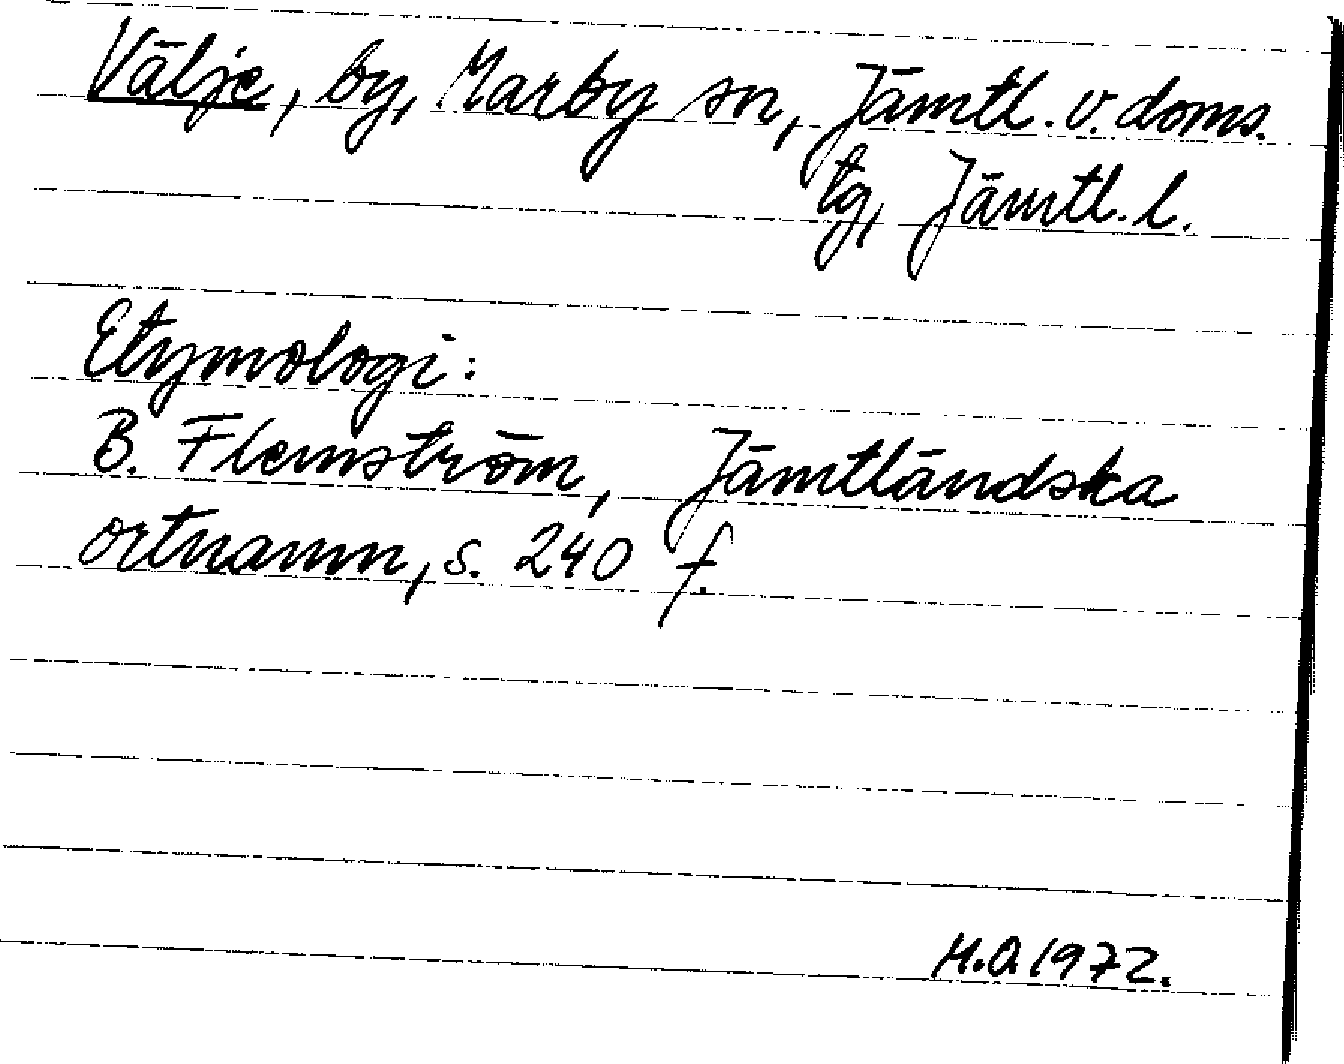 Välje, by, Marby sn, Jämtl. v. doms.
tg, Jämtl. l.
Etymologi:
B. Flemström, Jämtländska
ortnamn, s. 240 f.
H.O. 1972.